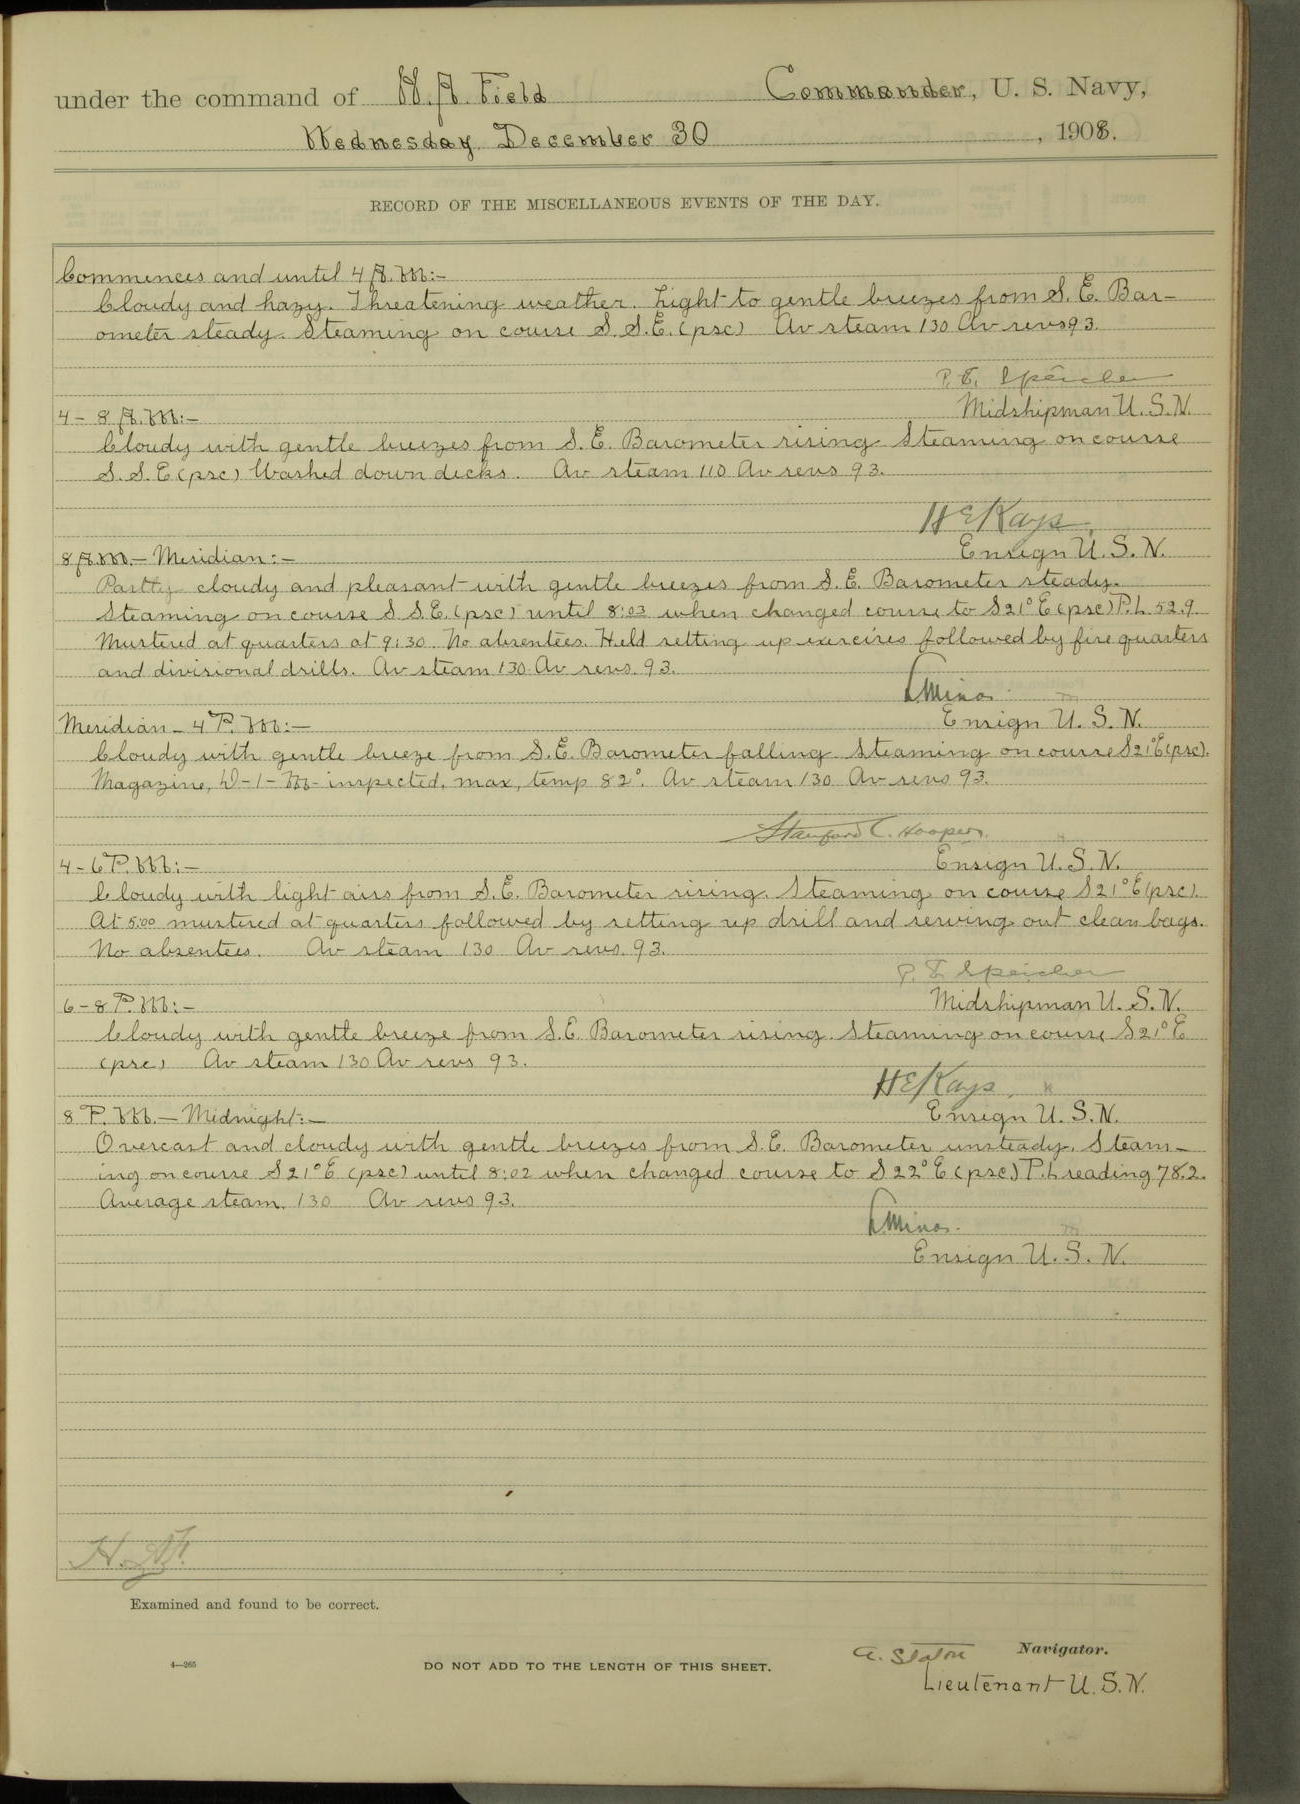 under the command of H. A. Field Commander, U. S. Navy,
Wednesday, December 30, 1908.
RECORD OF THE MISCELLANEOUS EVENTS OF THE DAY.
Commences and until 4 A.M:-
Cloudy and hazy. Threatening weather. Light to gentle breezes from S.E. Bar-
ometer steady. Steaming on course S.S.E. (psc) Av steam 130 Av revs 93.
P. E. Speicher
Midshipman U.S.N.
4 - 8 A.M:-
Cloudy with gentle breezes from S.E. Barometer rising. Steaming on course
S.S.E (psc) Washed down decks. Av steam 110 Av revs 93.
H E Kays
Ensign U.S.N.
8 A.M.- Meridian:-
Partly cloudy and pleasant with gentle breezes from S.E. Barometer steady.
Steaming on course S S.E. (psc) until 8:03 when changed course to S 21° E (psc) P.L. 52.9
Mustered at quarters at 9:30. No absentees. Held setting up exercises followed by fire quarters
and divisional drills. Av steam 130 Av revs. 93.
L Minor
Ensign U.S.N.
Meridian - 4 P.M:-
Cloudy with gentle breeze from S.E. Barometer falling. Steaming on course S 21° E (psc).
Magazine, D-1-M inspected, max, temp 82°. Av steam 130 Av revs 93.
Stanford C. Hooper.
Ensign U.S.N.
4 - 6 P.M:-
Cloudy with light airs from S.E. Barometer rising. Steaming on course S 21° E (psc).
At 5:00 mustered at quarters followed by setting up drill and serving out clean bags.
No absentees. Av steam 130 Av revs. 93.
P. E. Speicher
Midshipman U.S.N.
6 - 8 P.M:-
Cloudy with gentle breeze from S.E. Barometer rising. Steaming on course S 21° E
(psc) Av steam 130 Av revs 93.
H E Kays
Ensign U.S.N.
8 P.M.- Midnight:-
Overcast and cloudy with gentle breezes from S.E. Barometer unsteady. Steam-
ing on course S 21° E (psc) until 8:02 when changed course to S 22° E (psc) P.L reading 78.2.
Average steam, 130 Av revs 93.
L Minor.
Ensign U.S.N.
H. A. F.
Examined and found to be correct.
A. Staton Navigator.
4—265 DO NOT ADD TO THE LENGTH OF THIS SHEET.
Lieutenant U.S.N.